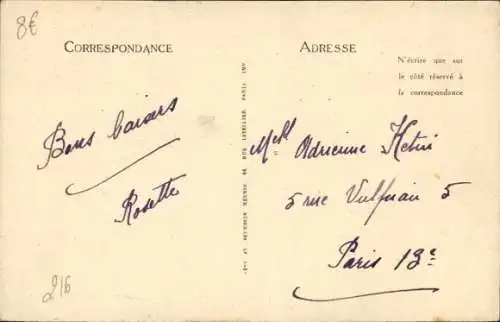 8€
CORRESPONDANCE
ADRESSE
N'écrire que sur
le côté réservé à
la correspondance
Bons baisers
Rosette
Melle Adrienne
5 rue Vulfuian 5
Paris 13e
216